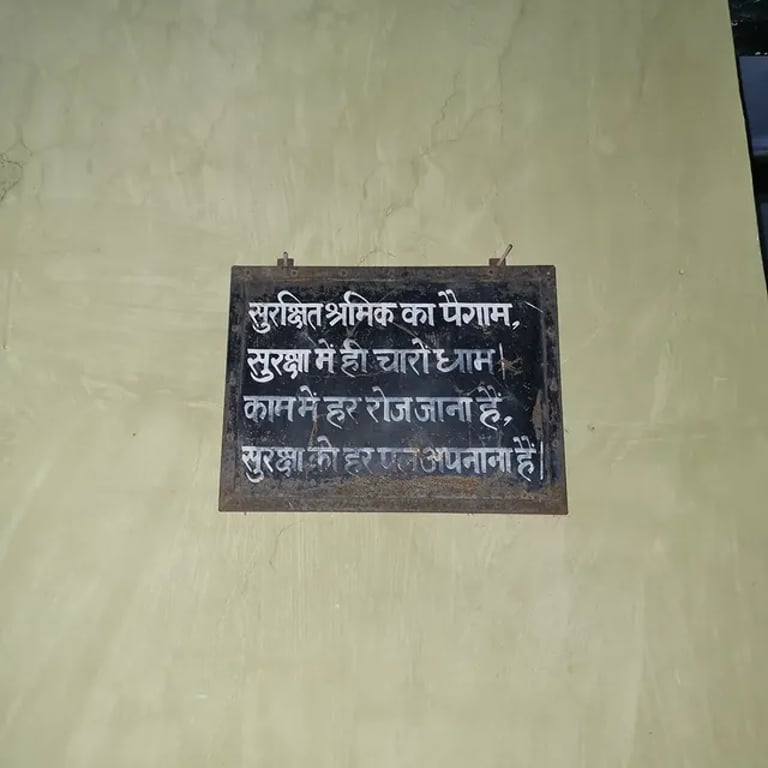 सुरक्षित श्रमिक का पैगाम,
सुरक्षा में ही चारों धाम।
काम में हर रोज जाना हैं,
सुरक्षा को हर पल अपनाना हैं।